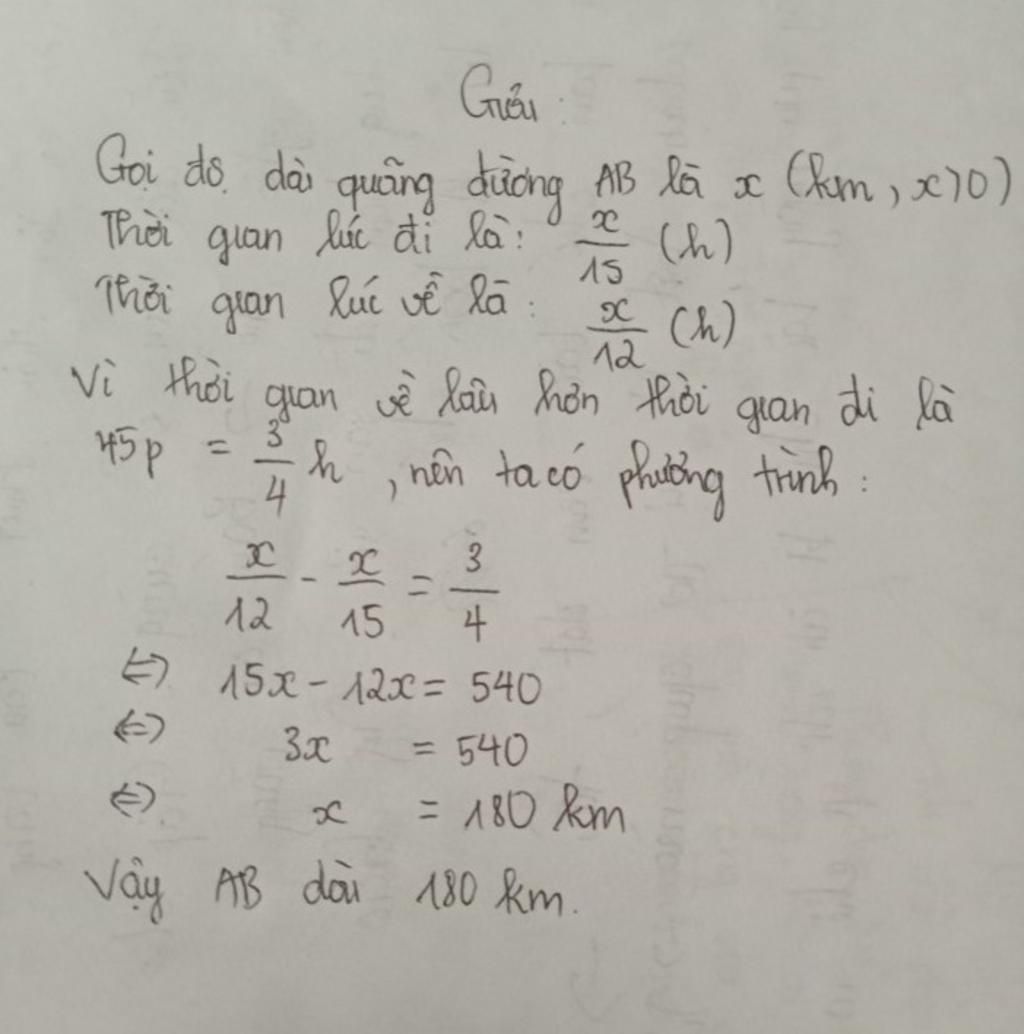 Giải:
Gọi độ dài quãng đường AB là x (km, x>0)
Thời gian lúc đi là: x/15 (h)
Thời gian lúc về là: x/12 (h)
Vì thời gian về lâu hơn thời gian đi là
45p = 3/4 h, nên ta có phương trình:
x/12 - x/15 = 3/4
⇔ 15x - 12x = 540
⇔ 3x = 540
⇔ x = 180 km
Vậy AB dài 180 km.